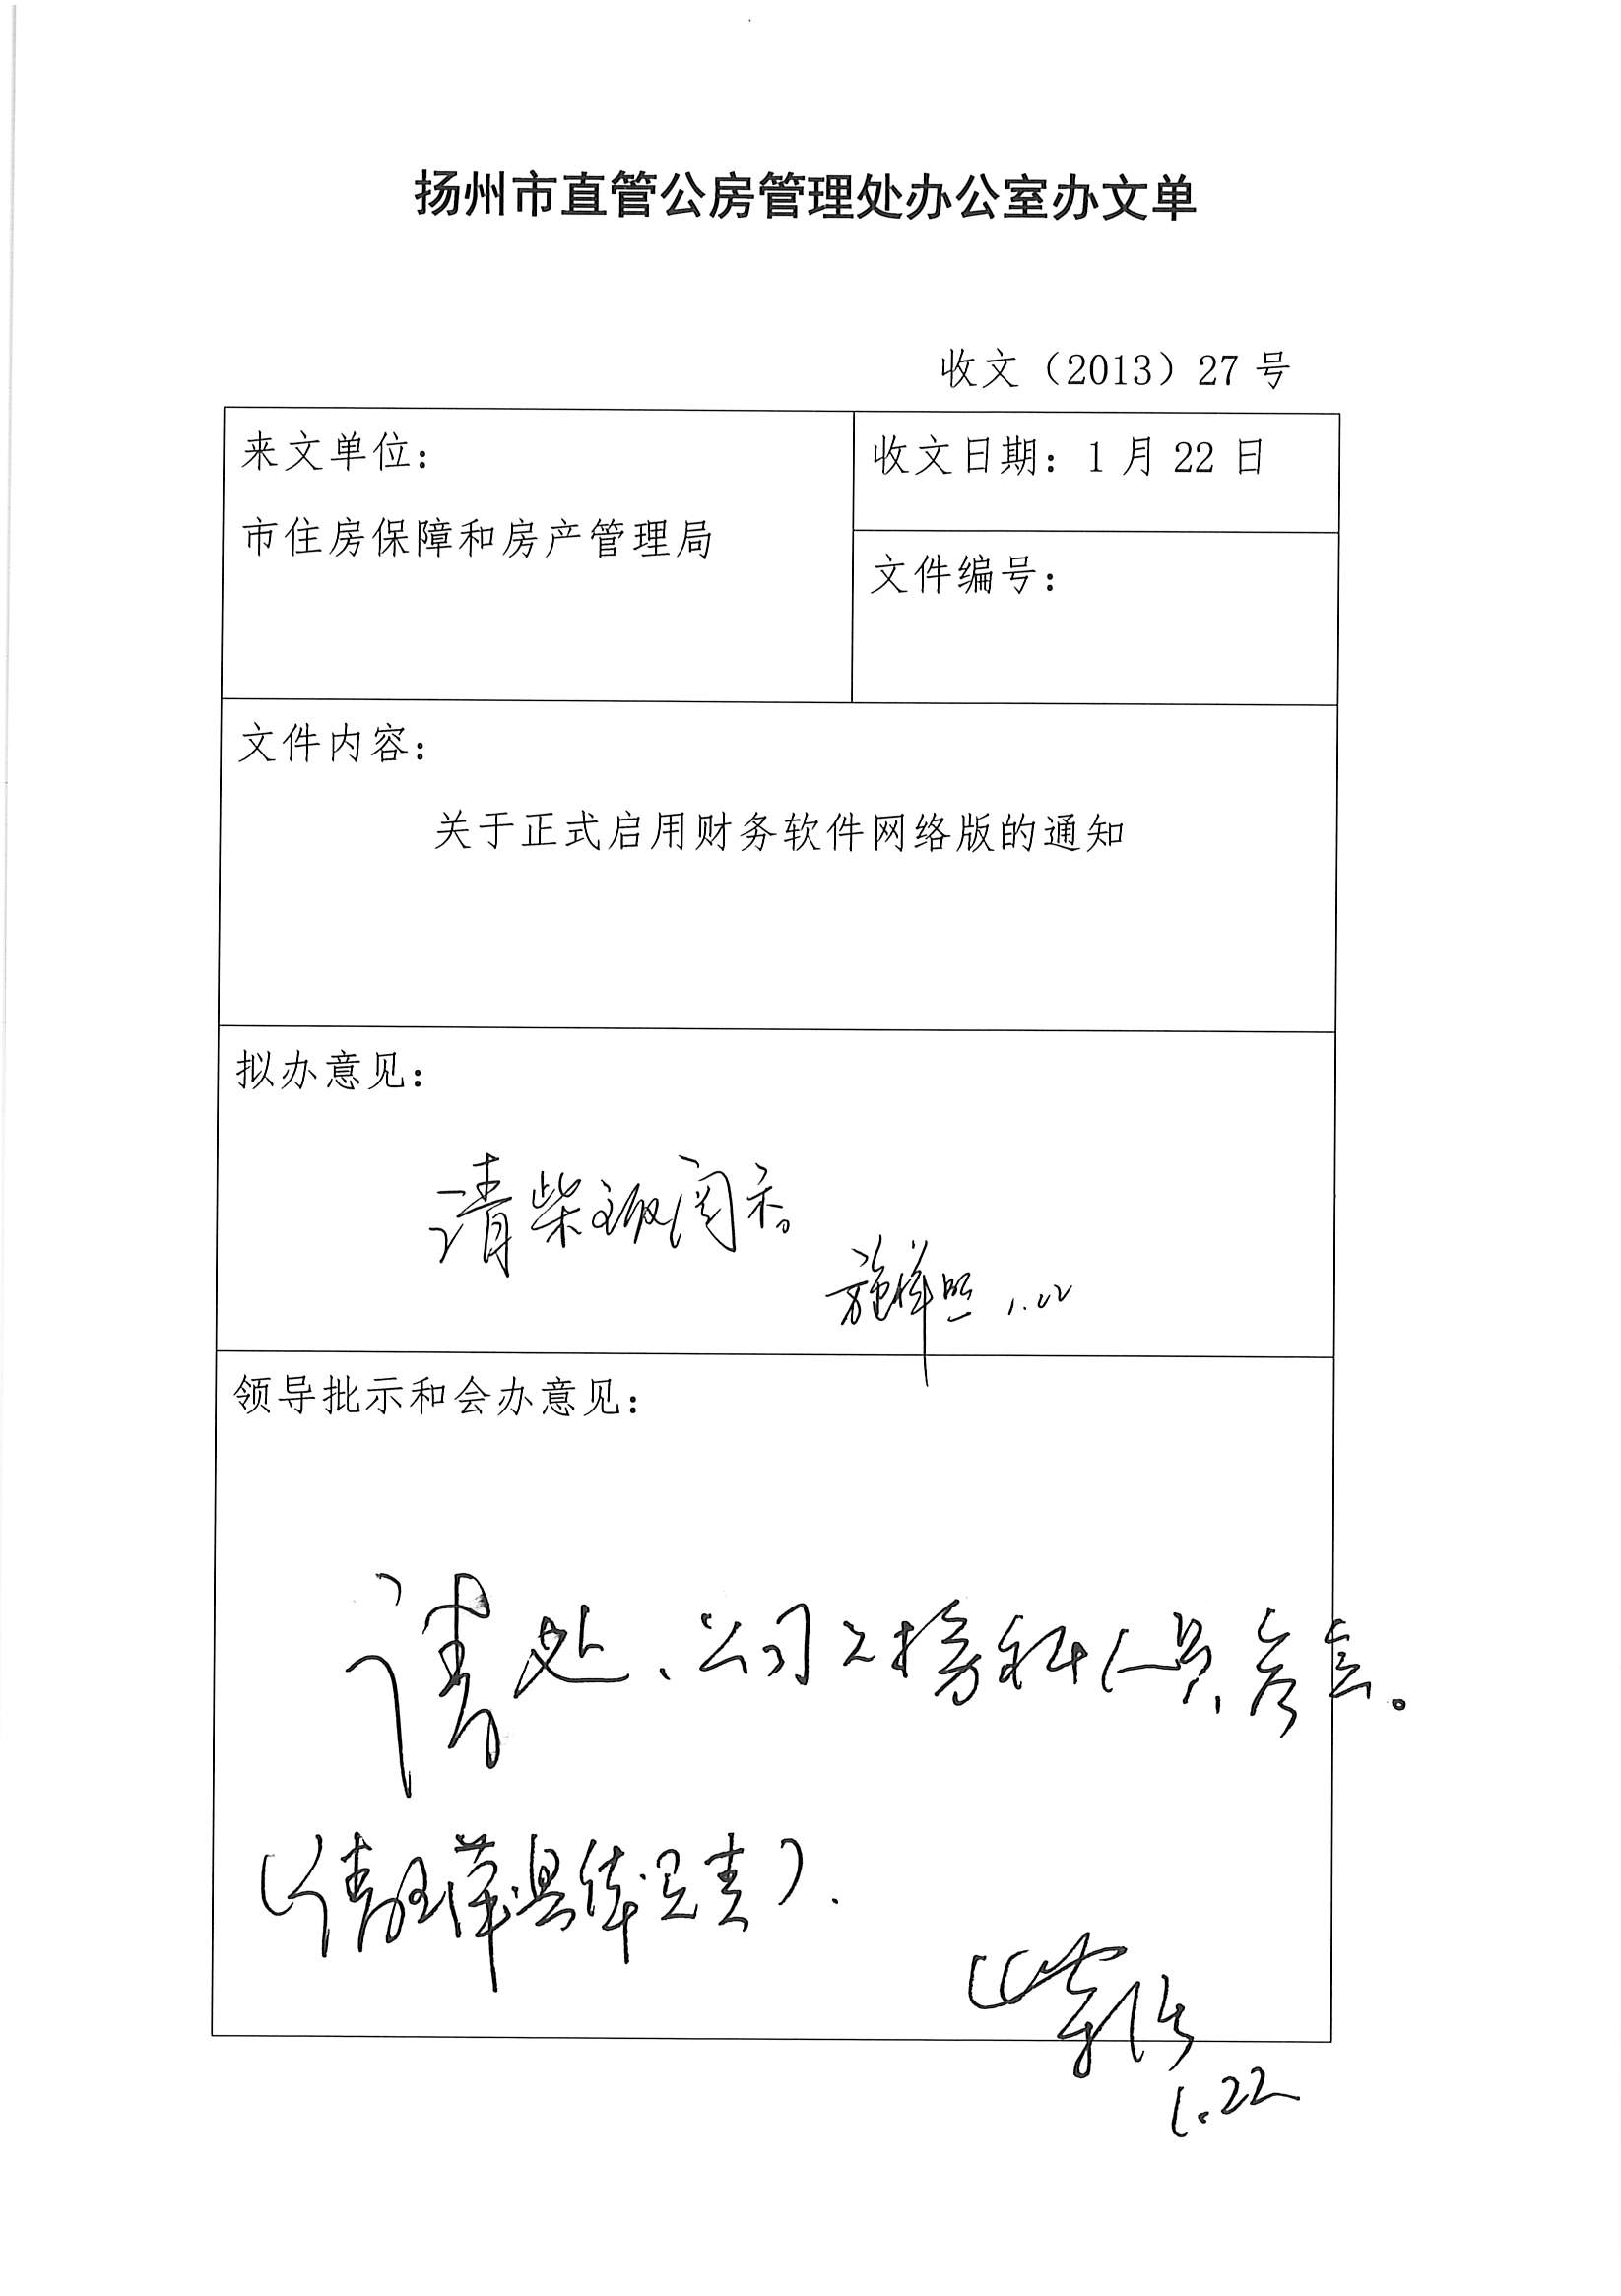 扬州市直管公房管理处办公室办文单
收文（2013）27 号
来文单位：
市住房保障和房产管理局
收文日期：1 月 22 日
文件编号：
文件内容：
关于正式启用财务软件网络版的通知
拟办意见：
请柴主任阅示。
施祥照 1.22
领导批示和会办意见：
请处、公司 人员
（请 萍具体负责）.
柴
1.22